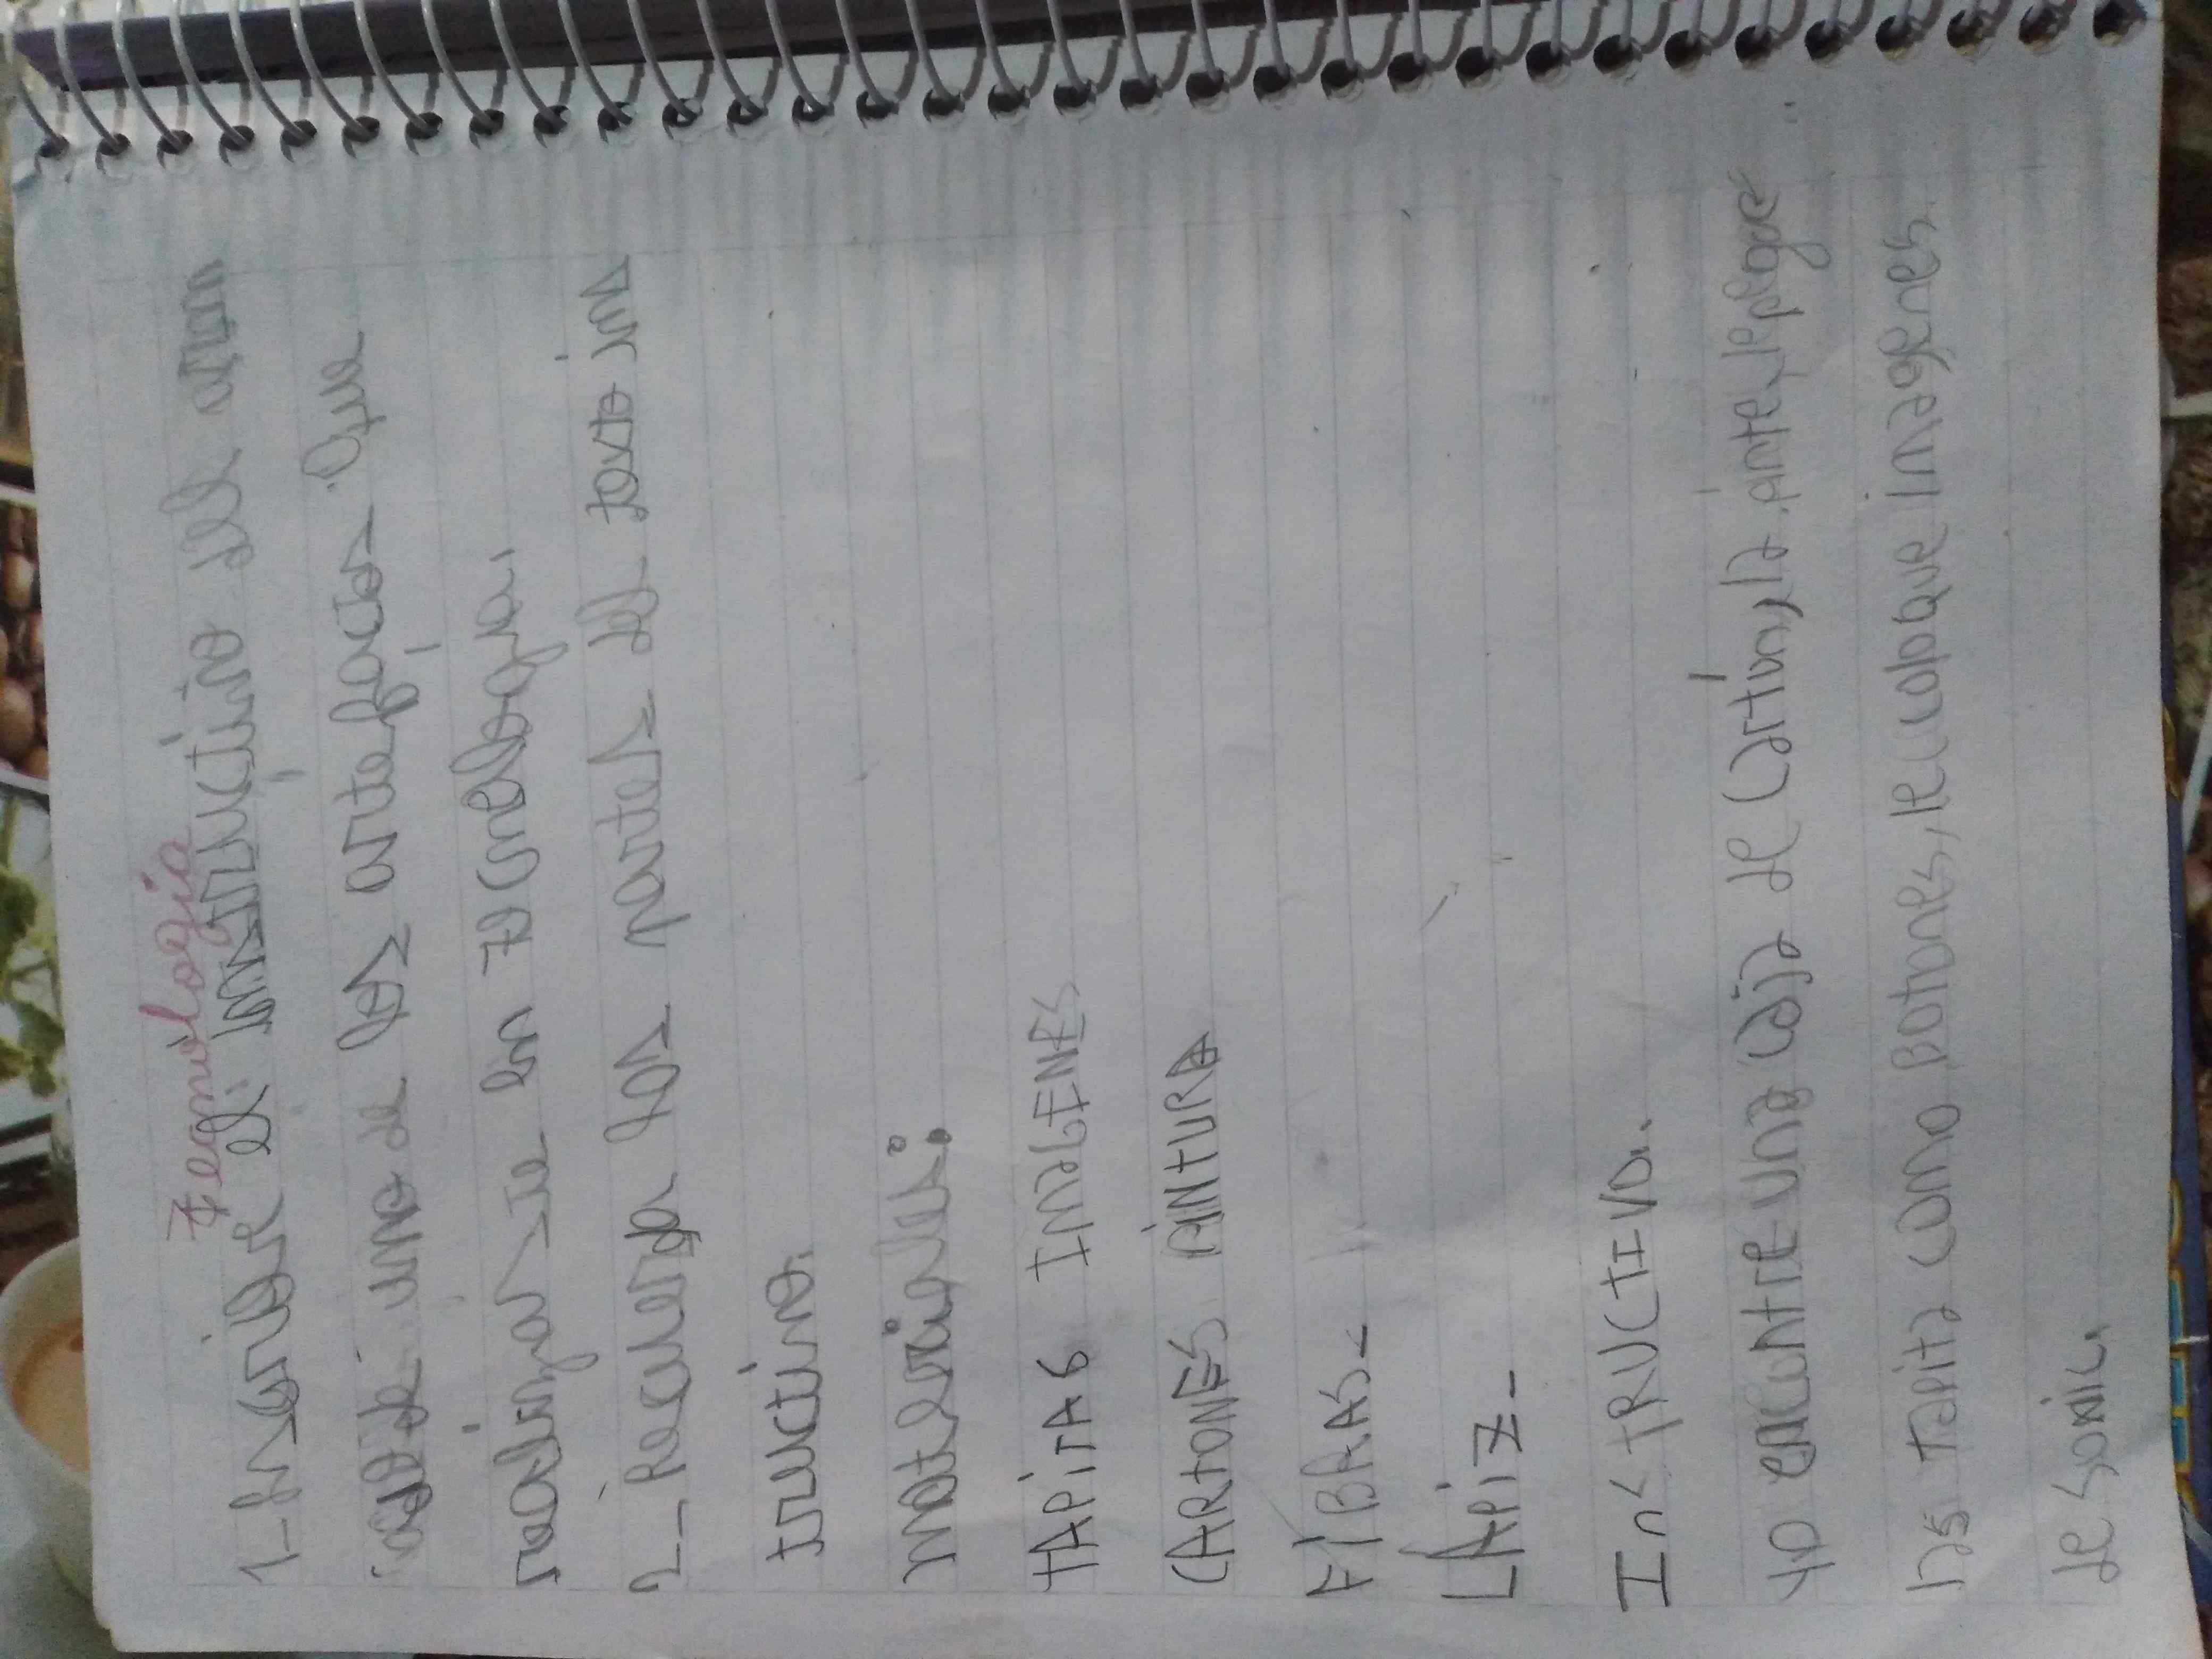 Tecnología
1- Escribir el: instructivo del arm
cada uno de los artefactos que
realizaste en Tecnología.
2- Recuerda las partes del texto ins
tructivo.
materiales:
TAPITAS IMaGENES
CARTONES PiNTURA
FIBRAS.-
LAPiZ.-
InSTRUCTIVO.
yo encontre una caja de Cartón, la pinte, le pegue
las Tapita como Botones, le coloque imagenes
de Sonic.